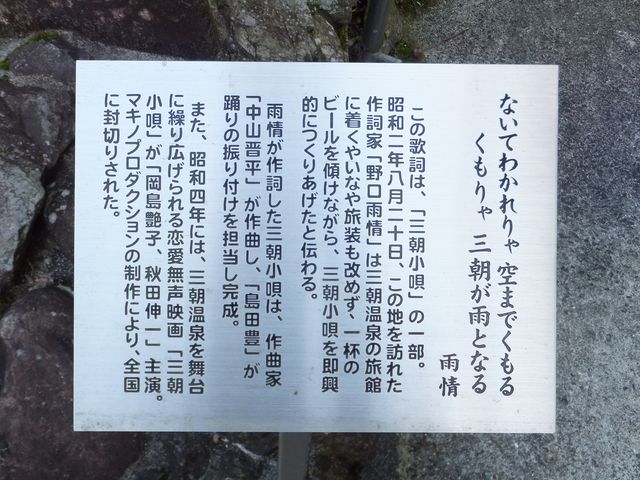 ないてわかれりゃ 空までくもる
くもりゃ 三朝が雨となる
雨情
この歌詞は、「三朝小唄」の一部。
昭和二年八月二十日、この地を訪れた
作詞家「野口雨情」は三朝温泉の旅館
に着くやいなや旅装も改めず、一杯の
ビールを傾けながら、三朝小唄を即興
的につくりあげたと伝わる。
雨情が作詞した三朝小唄は、作曲家
「中山晋平」が作曲し、「島田豊」が
踊りの振り付けを担当し完成。
また、昭和四年には、三朝温泉を舞台
に繰り広げられる恋愛無声映画「三朝
小唄」が「岡島艶子、秋田伸一」主演。
マキノプロダクションの制作により、全国
に封切りされた。